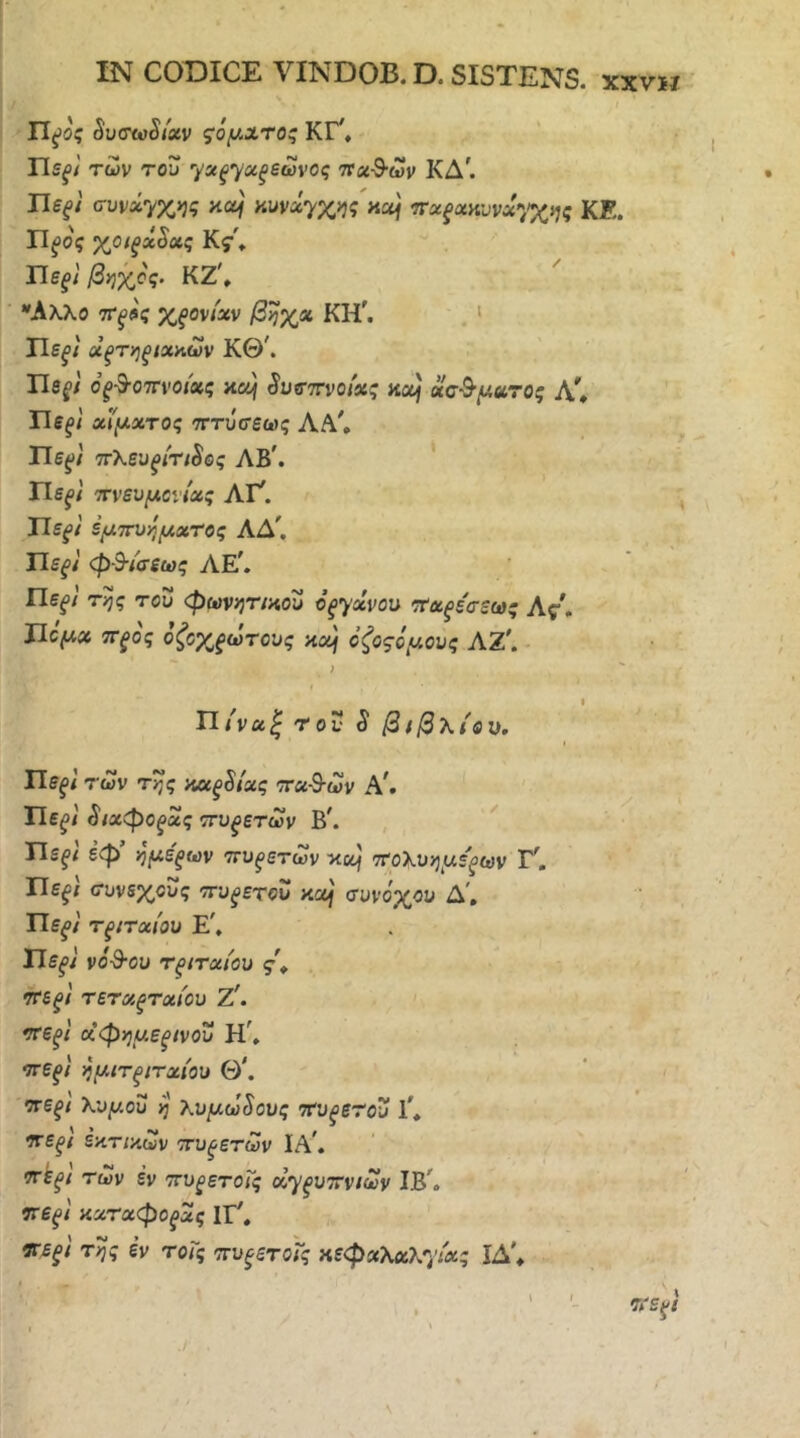 IN CODICE VINDOB. D. SISTENS. XXVII
Πρὸς δυσωδίαν ϛόματος ΚΓ′.
Περὶ τῶν τοῦ γαργαρεῶνος παθῶν ΚΔ′.
Περὶ συνάγχης καὶ κυνάγχης καὶ παρακυνάγχης ΚΕ.
Πρὸς χοιράδας Κϛ′.
Περὶ βηχός. ΚΖ′.
Ἄλλο πρὸς χρονίαν βῆχα ΚΗ′.
Περὶ ἀρτηριακῶν ΚΘ′.
Περὶ ὀρθοπνοίας καὶ δυσπνοίας καὶ ἄσθματος Λ′.
Περὶ αἵματος πτύσεως ΛΑ′.
Περὶ πλευρίτιδος ΛΒ′.
Περὶ πνευμονίας ΛΓ′.
Περὶ ἐμπυήματος ΛΔ′.
Περὶ φθίσεως ΛΕ′.
Περὶ τῆς τοῦ φωνητικοῦ ὀργάνου παρέσεως Λϛ′.
Πόμα πρὸς ὀξοχρώτους καὶ ὀξοϛόμους ΛΖ′.
Πίναξ τοῦ δ βιβλίου.
Περὶ τῶν τῆς καρδίας παθῶν Α′.
Περὶ διαφορᾶς πυρετῶν Β′.
Περὶ ἐφ’ ἡμέρων πυρετῶν καὶ πολυημέρων Γ′.
Περὶ συνεχοῦς πυρετοῦ καὶ συνόχου Δ′.
Περὶ τριταίου Ε′.
Περὶ νόθου τριταίου ϛ′.
περὶ τεταρταίου Ζ′.
περὶ ἀφημερινοῦ Η′.
περὶ ἡμιτριταίου Θ′.
περὶ λυμοῦ ἢ λυμώδους πυρετοῦ Ι′.
περὶ ἑκτικῶν πυρετῶν ΙΑ′.
περὶ τῶν ἐν πυρετοῖς ἀγρυπνιῶν ΙΒ′.
περὶ καταφορᾶς ΙΓ′.
περὶ τῆς ἐν τοῖς πυρετοῖς κεφαλαλγίας ΙΔ′.
περὶ